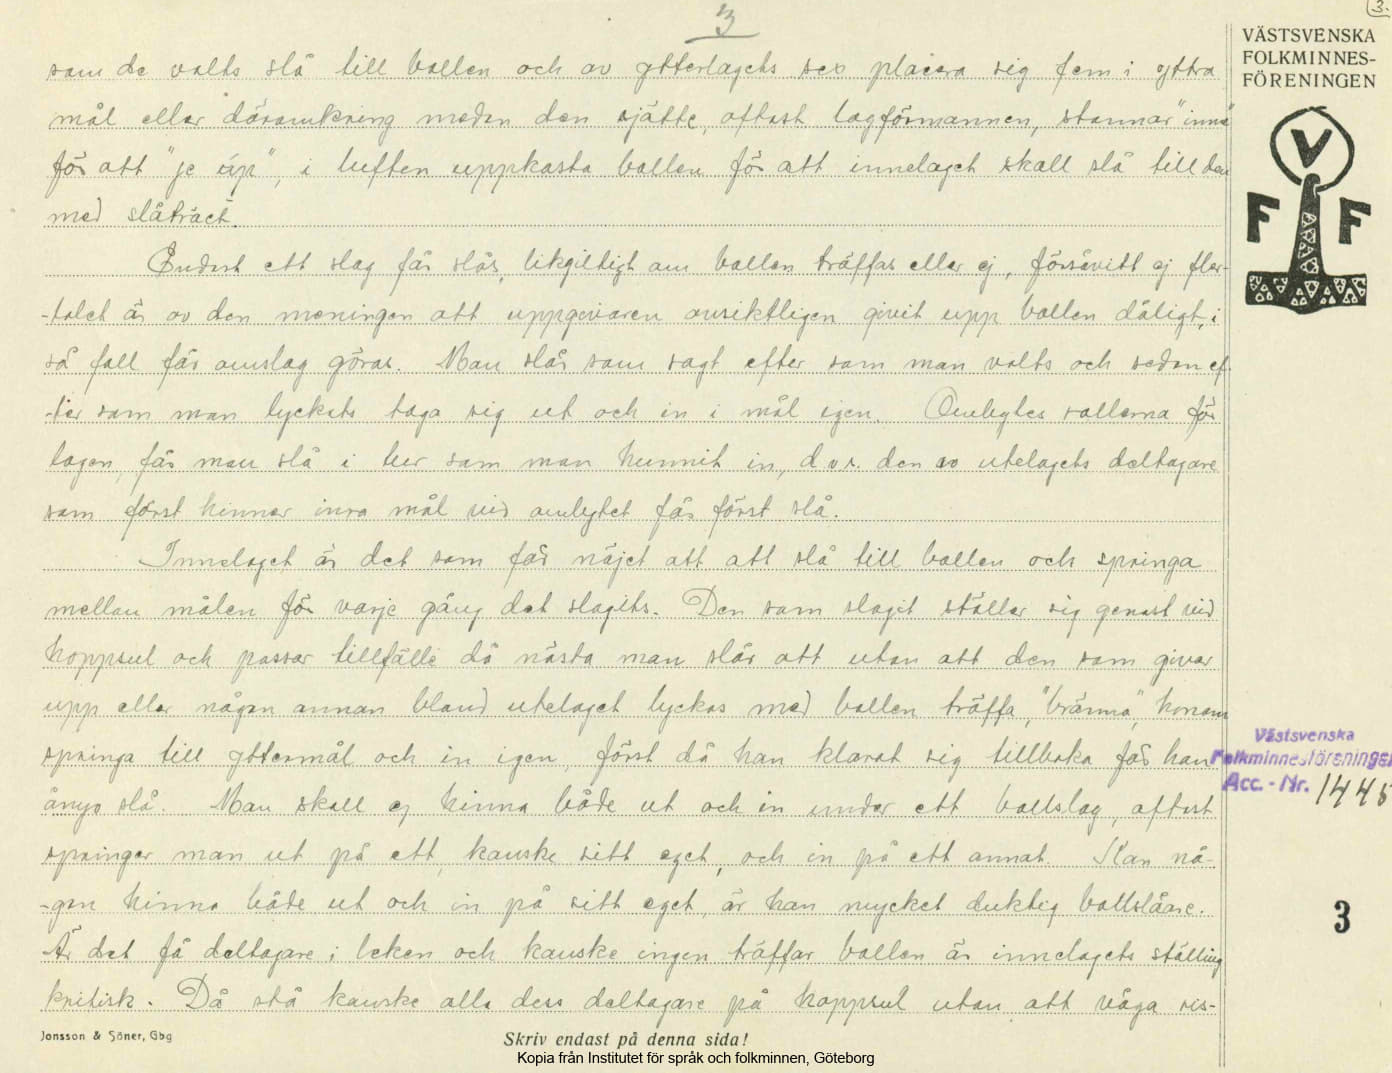 3
3.
VÄSTSVENSKA
FOLKMINNES-
FÖRENINGEN
V
F F
som de valts slå till bollen och av ytterlagets sex placera sig fem i yttra
mål eller däromkring medan den sjätte, oftast lagförmannen, stannar "inna"
för att "je úp", i luften uppkasta bollen för att innelaget skall slå till den
med slåträet.
Endast ett slag får slås, likgiltigt om bollen träffas eller ej, försåvitt ej fler-
-talet är av den meningen att uppgivaren avsiktligen givit upp bollen dåligt, i
så fall får omslag göras. Man slår som sagt efter som man valts och sedan ef-
-ter som man lyckats taga sig ut och in i mål igen. Ombytes rollerna för
lagen, får man slå i tur som man hunnit in, d.v.s. den av utelagets deltagare
som först hinner inra mål vid ombytet får först slå.
Innelaget är det som får nöjet att att slå till bollen och springa
mellan målen för varje gång det slagits. Den som slagit ställer sig genast vid
hoppsul och passar tillfälle då nästa man slår att utan att den som giver
upp eller någon annan bland utelaget lyckas med bollen träffa, "bränna", honom
springa till yttermål och in igen, först då han klarat sig tillbaka får han
ånyo slå. Man skall ej hinna både ut och in under ett bollslag, oftast
springer man ut på ett, kanske sitt eget, och in på ett annat. Kan nå-
-gon hinna både ut och in på sitt eget, är han mycket duktig bollslåare.
Är det få deltagare i leken och kanske ingen träffar bollen är innelagets ställing
kritisk. Då stå kanske alla dess deltagare på hoppsul utan att våga ris-
Västsvenska
Folkminnesföreningen
Acc. - Nr. 1445
3
Jonsson & Söner, Gbg
Skriv endast på denna sida!
Kopia från Institutet för språk och folkminnen, Göteborg